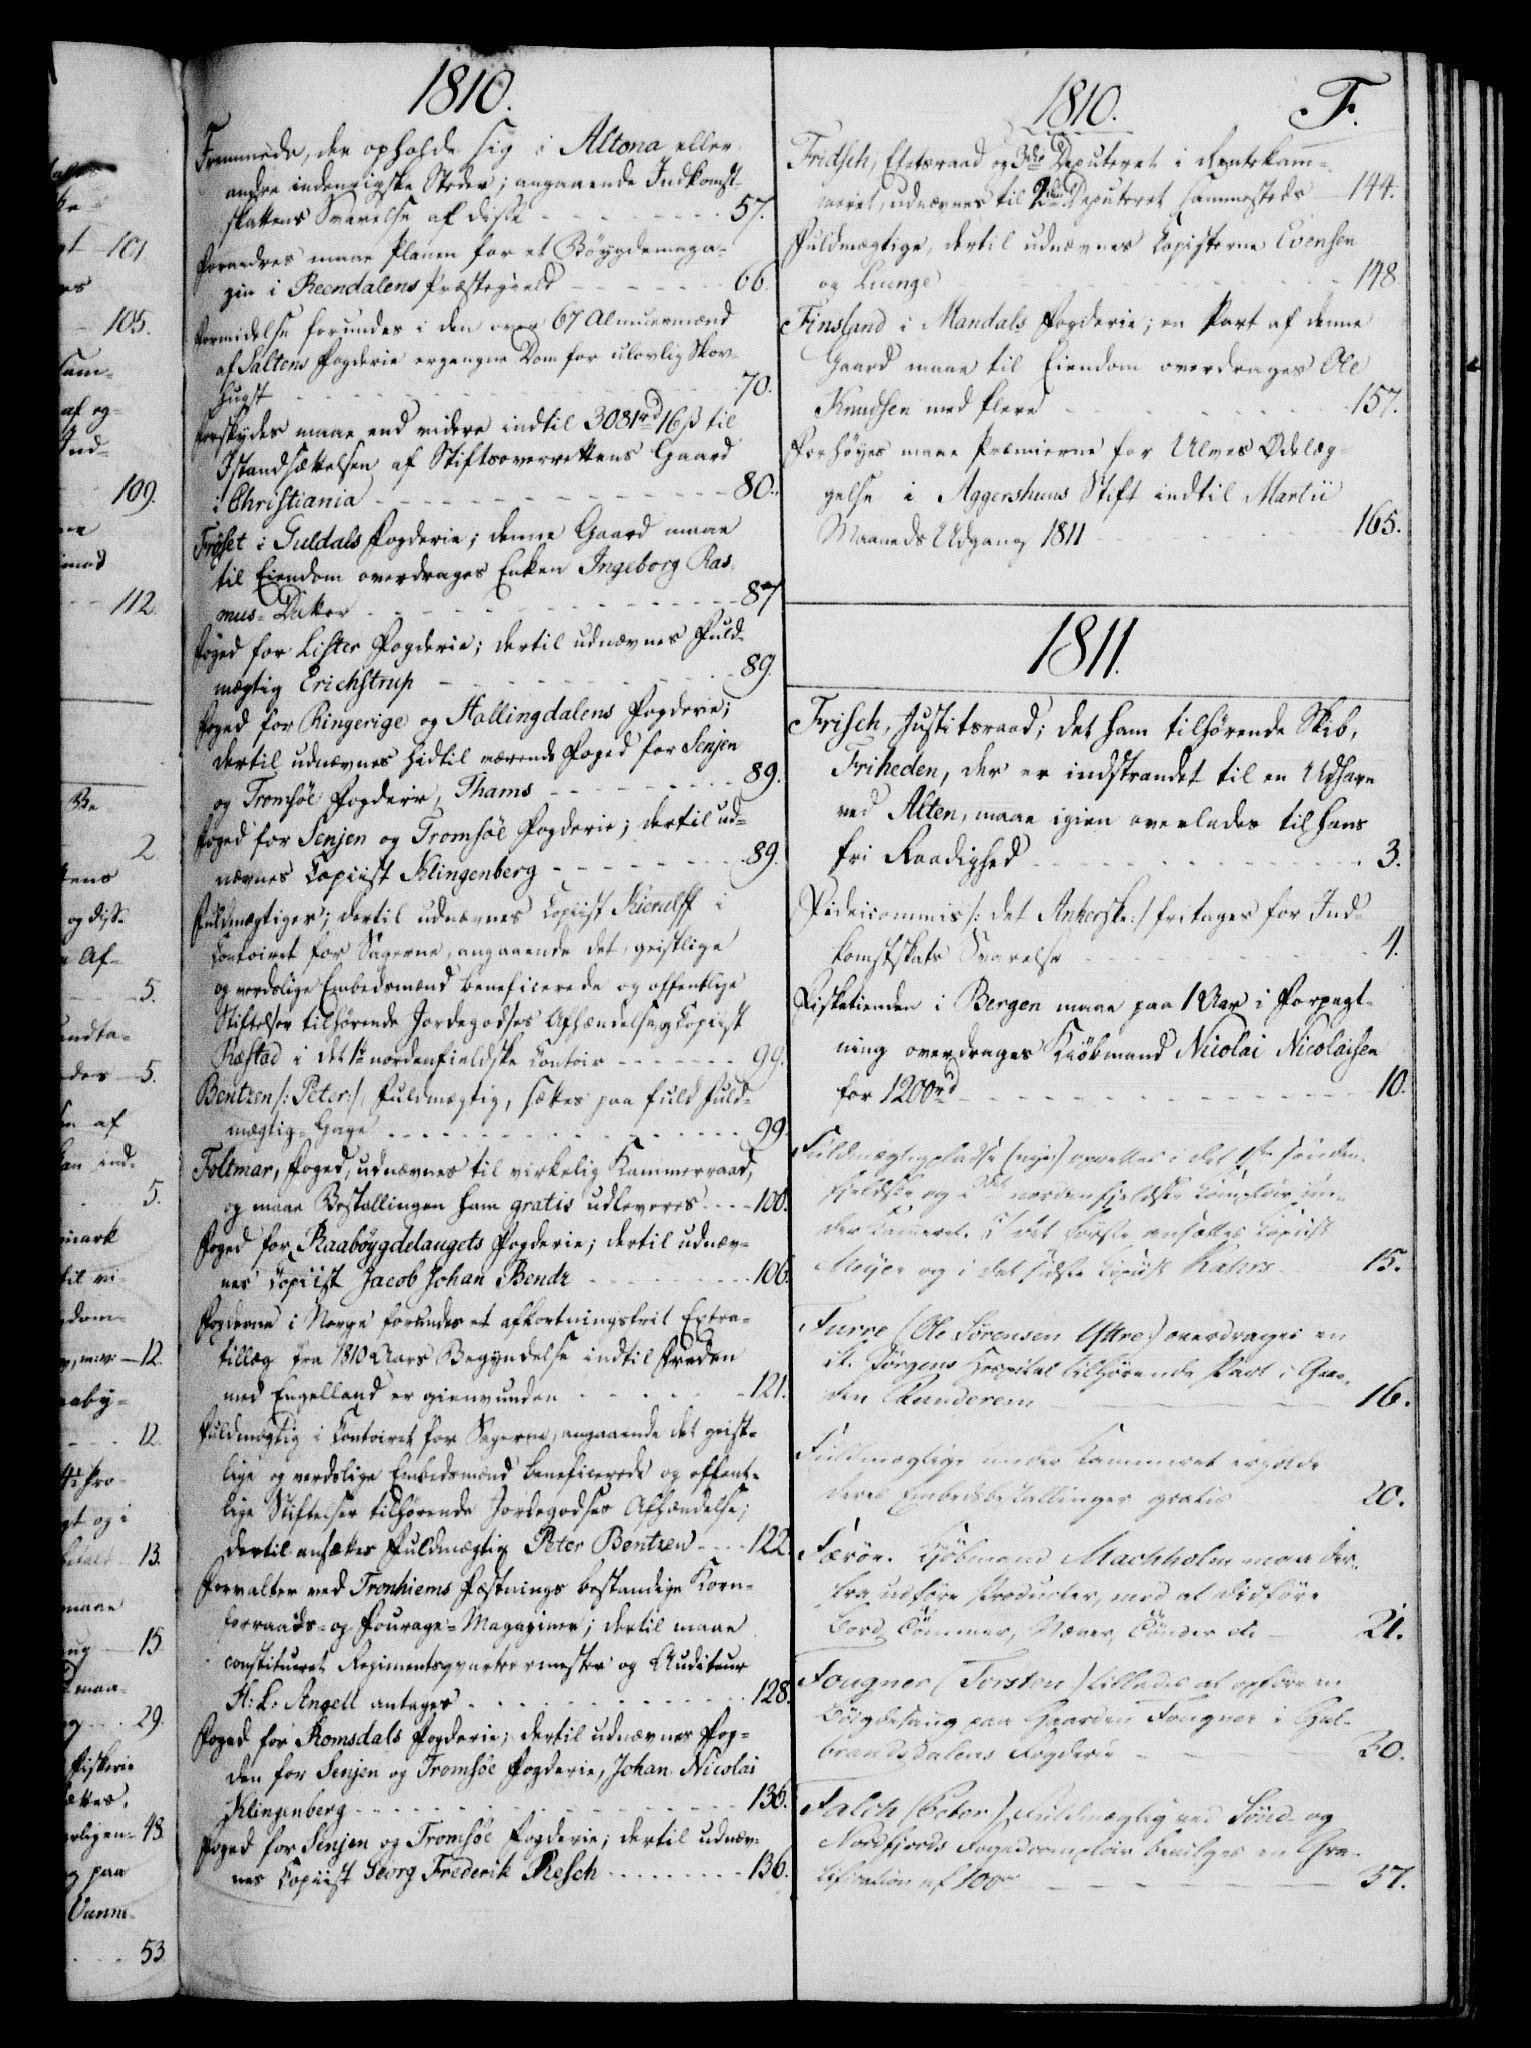 1810.
Fremmede, der opholde sig i Altona eller
andre indenrigske Steder; angaaende Indkomst-
skattens Svarelse af disse - - - 57.
Forandres maae Planen for et Böygdemaga-
zin i Reendalens Præstegield - - - 66.
Formidelse forundes i den over 67 Almuesmænd
af Saltens Fogderie ergangne Dom for ulovlig Skov-
hugst - - - 70.
Forskydes maae end videre indtil 3081 rd 16 ß til
Istandsættelsen af Stiftsoverrettens Gaard
i Christiania - - - 80.
Fröset i Guldals Fogderie; denne Gaard maae
til Eiendom overdrages Enken Ingeborg Ras-
mus-Datter - - - 87
Foged for Lister Fogderie; dertil udnævnes Fuld-
mægtig Erichstrup - - - 89.
Foged for Ringerige og Hallingdalens Fogderie;
dertil udnævnes hidtil værende Foged for Senjen
og Tromsöe Fogderie, Thams - - - 89.
Foged for Senjen og Tromsöe Fogderie; dertil ud-
nævnes Copiist Klingenberg - - - 89.
Fuldmægtiger; dertil udnævnes Copiist Kierulff i
Contoiret for Sagerne, angaaende det, geistlige
og verdslige Embedsmænd beneficerede og offentlige
Stiftelser tilhørende Jordegodses Afhændelse og Copiist
Ræstad i det 1te nordenfieldske Contoir - - - 99.
Bentzen /:Peter:/, Fuldmægtig, sættes paa fuld Fuld-
mægtig-Gage - - - 99.
Foltmar, Foged, udnævnes til virkelig Kammerraad,
og maae Bestallingen ham gratis udleveres - - - 100.
Foged for Raabøygdelaugets Fogderie; dertil udnæv-
nes Copiist Jacob Johan Bendz - - - 106.
Fogderne i Norge forundes et afkortningsfrit Extra-
tillæg fra 1810 Aars Begyndelse indtil Freden
med Engelland er gienvunden - - - 121.
Fuldmægtig i Contoiret for Sagerne, angaaende det geist-
lige og verdslige Embedsmænd beneficerede og offent-
lige Stiftelser tilhørende Jordegodses Afhændelse;
dertil ansættes Fuldmægtig Peter Bentzen - - - 122
Forvalter ved Tronhiems Fæstnings bestandige Korn-
forraads- og Fourage-Magaziner; dertil maae
constitueret Regimentsqvarteermester og Auditeur
H: L: Angell antages - - - 128.
Foged for Romsdals Fogderie; dertil udnævnes Fog-
den for Senjen og Tromsöe Fogderie, Johan Nicolai
Klingenberg - - - 136.
Foged for Senjen og Tromsöe Fogderie; dertil udnæv-
nes Copiist Georg Frederik Resch - - - 136.
1810. F.
Fridsch, Etatsraad og 3die Deputeret i Rentekam-
meret, udnævnes til 2den Deputeret sammesteds - 144.
Fuldmægtige, dertil udnævnes Copisterne Evensen
og Lunge - - - 148.
Finsland i Mandals Fogderie; en Part af denne
Gaard maae til Eiendom overdrages Ole
Knudsen med flere - - - 157.
Forhøyes maae Præmierne for Ulves Ødelæg-
gelse i Aggershuus Stift indtil Martii
Maaneds Udgang 1811 - - - 165.
1811.
Frisch, Justitsraad; det ham tilhørende Skib,
Friheden, der er indstrandet til en Udhavn
ved Alten, maae igien overlades til hans
fri Raadighed - - - 3.
Fideicommis /: det Ankerske :/ fritages for Ind-
komstskats Svarelse - - - 4.
Fisketienden i Bergen maae paa 1 Aar i Forpagt-
ning overdrages Kiøbmand Nicolai Nicolaisen
for 1200 rd - - - 10.
Fuldmægtigpladse (nye) oprettes i det 1ste sönden-
fjeldske og 2det nordenfjeldske Comptoir un-
der Kammeret. I det første ansættes Copiist
Meyer og i det sidste Copiist Rahrs 15.
Furre (Ole Sörensen Yttre) overdrages en
St. Jørgens Hospital tilhørende Part i Gaar-
den Runderem - - - 16.
Fuldmægtige under Kammeret erholde
deres Embedsbestallinger gratis 20.
Færöe. Kjöbmand Machholm maa der-
fra udføre Producter, mod at didføre
Bord, Tömmer, Næver, Tönder etc. - 21.
Fougner (Torsten) tillades at opføre en
Böigdesaug paa Gaarden Fougner i Gul-
brandsdalens Fogderie - - - 30.
Falch (Peter), Fuldmægtig ved Sönd- og
Nordfjords Fogedcomptoir bevilges en Gra-
tification af 100 rd - - - 37.
101
105.
109.
112.
2
5.
5.
5.
12.
12.
13.
15
29.
48.
53